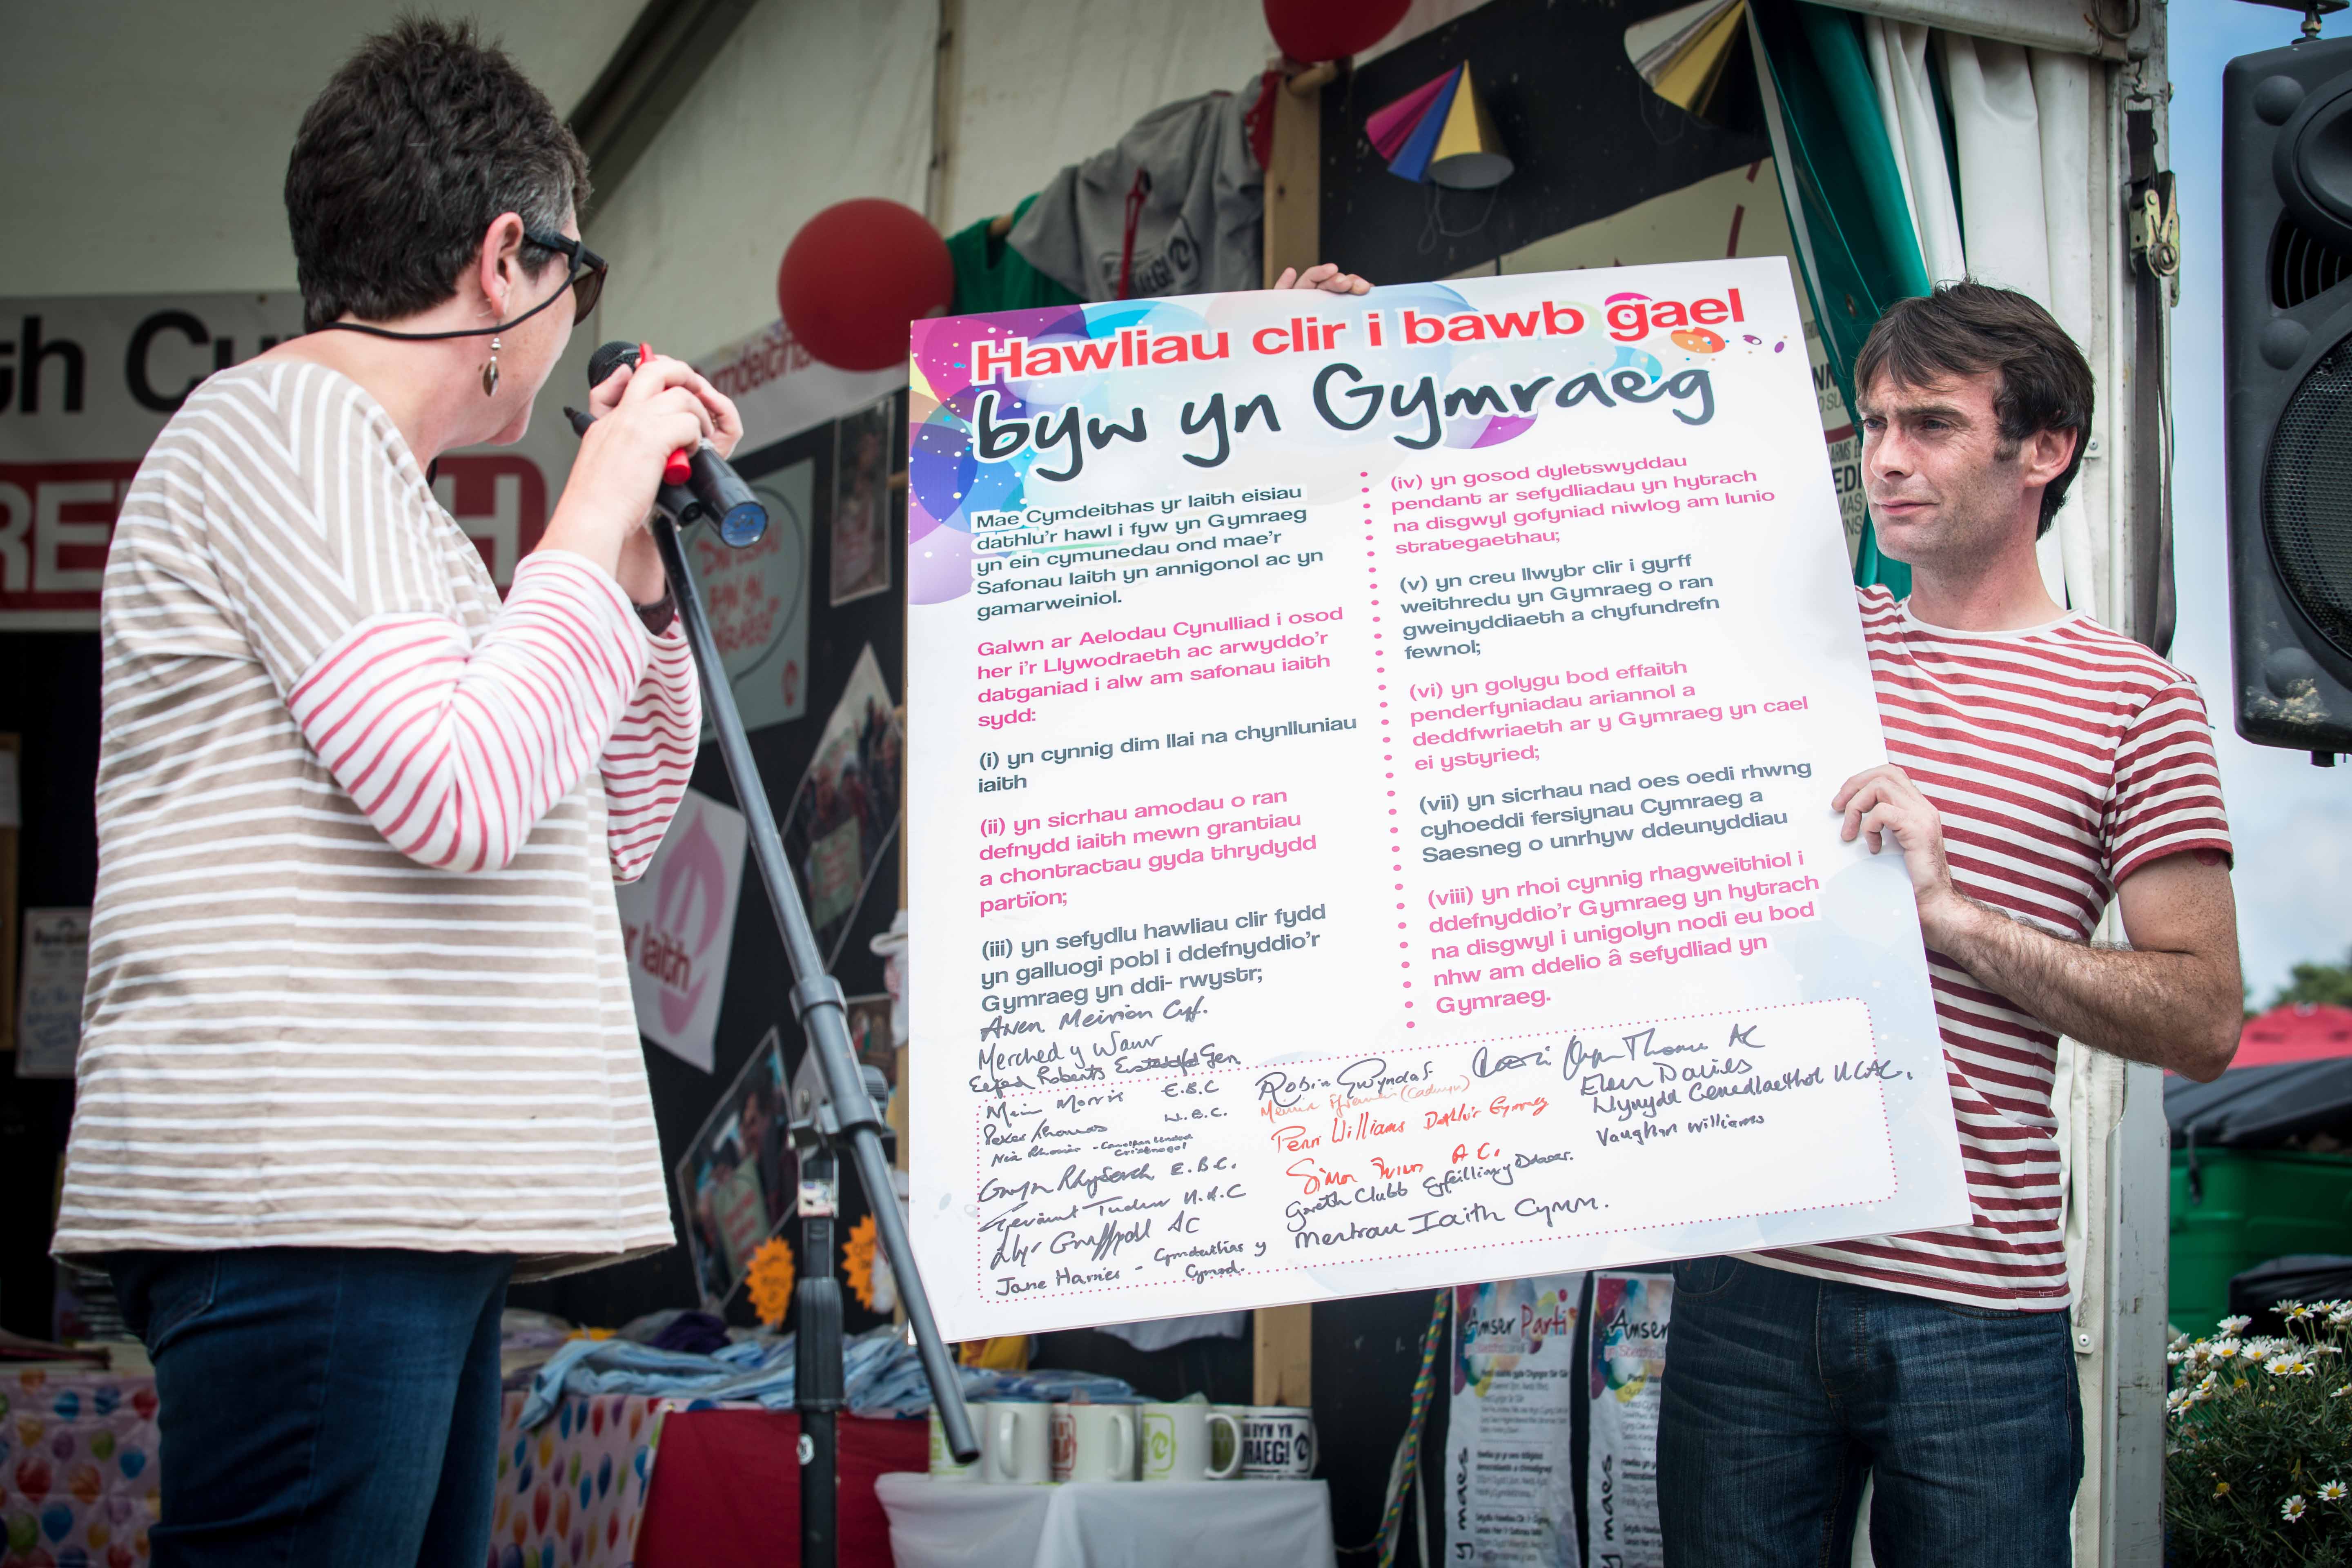 Hawliau clir i bawb gael
byw yn Gymraeg
Mae Cymdeithas yr Iaith eisiau
dathlu'r hawl i fyw yn Gymraeg
yn ein cymunedau ond mae'r
Safonau Iaith yn annigonol ac yn
gamarweiniol.
Galwn ar Aelodau Cynulliad i osod
her i'r Llywodraeth ac arwyddo'r
datganiad i alw am safonau iaith
sydd:
(i) yn cynnig dim llai na chynlluniau
iaith
(ii) yn sicrhau amodau o ran
defnydd iaith mewn grantiau
a chontractau gyda thrydydd
partïon;
(iii) yn sefydlu hawliau clir fydd
yn galluogi pobl i ddefnyddio'r
Gymraeg yn ddi- rwystr;
(iv) yn gosod dyletswyddau
pendant ar sefydliadau yn hytrach
na disgwyl gofyniad niwlog am lunio
strategaethau;
(v) yn creu llwybr clir i gyrff
weithredu yn Gymraeg o ran
gweinyddiaeth a chyfundrefn
fewnol;
(vi) yn golygu bod effaith
penderfyniadau ariannol a
deddfwriaeth ar y Gymraeg yn cael
ei ystyried;
(vii) yn sicrhau nad oes oedi rhwng
cyhoeddi fersiynau Cymraeg a
Saesneg o unrhyw ddeunyddiau
(viii) yn rhoi cynnig rhagweithiol i
ddefnyddio'r Gymraeg yn hytrach
na disgwyl i unigolyn nodi eu bod
nhw am ddelio â sefydliad yn
Gymraeg.
Awen Meirion Cyf.
Merched y Wawr
Roberts Gen
Morris E.B.C
Peter Thomas W.B.C.
Nia Rhosier -
Gwyn E.B.C.
Geraint Tudur U.A.C
Llyr Gruffydd AC
Jane Harries - Cymdeithas y
Cymod.
Robin Gwyndaf.
(Cadwyn)
Penri Williams Dathlu'r Gymraeg
Simon A.C.
Gareth Clubb Cyfeillion y Ddaear.
Mentrau Iaith Cymru.
Thomas AC
Elen Davies
Llywydd Cenedlaethol UCAC.
Vaughan Williams
th Cy
r Iaith
Amser Parti
Amser
y maes
maes